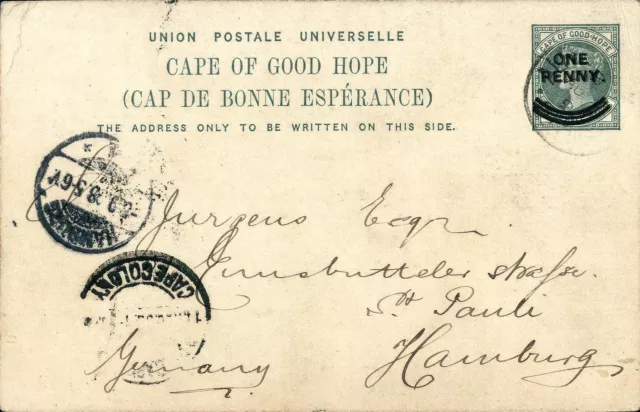 UNION POSTALE UNIVERSELLE
CAPE OF GOOD HOPE
(CAP DE BONNE ESPÉRANCE)
THE ADDRESS ONLY TO BE WRITTEN ON THIS SIDE.
CAPE OF GOOD HOPE
ONE
PENNY.
Jurgens Esqr
Eimsbutteler strasse.
St Pauli
Hamburg
Germany
CAPE COLONY